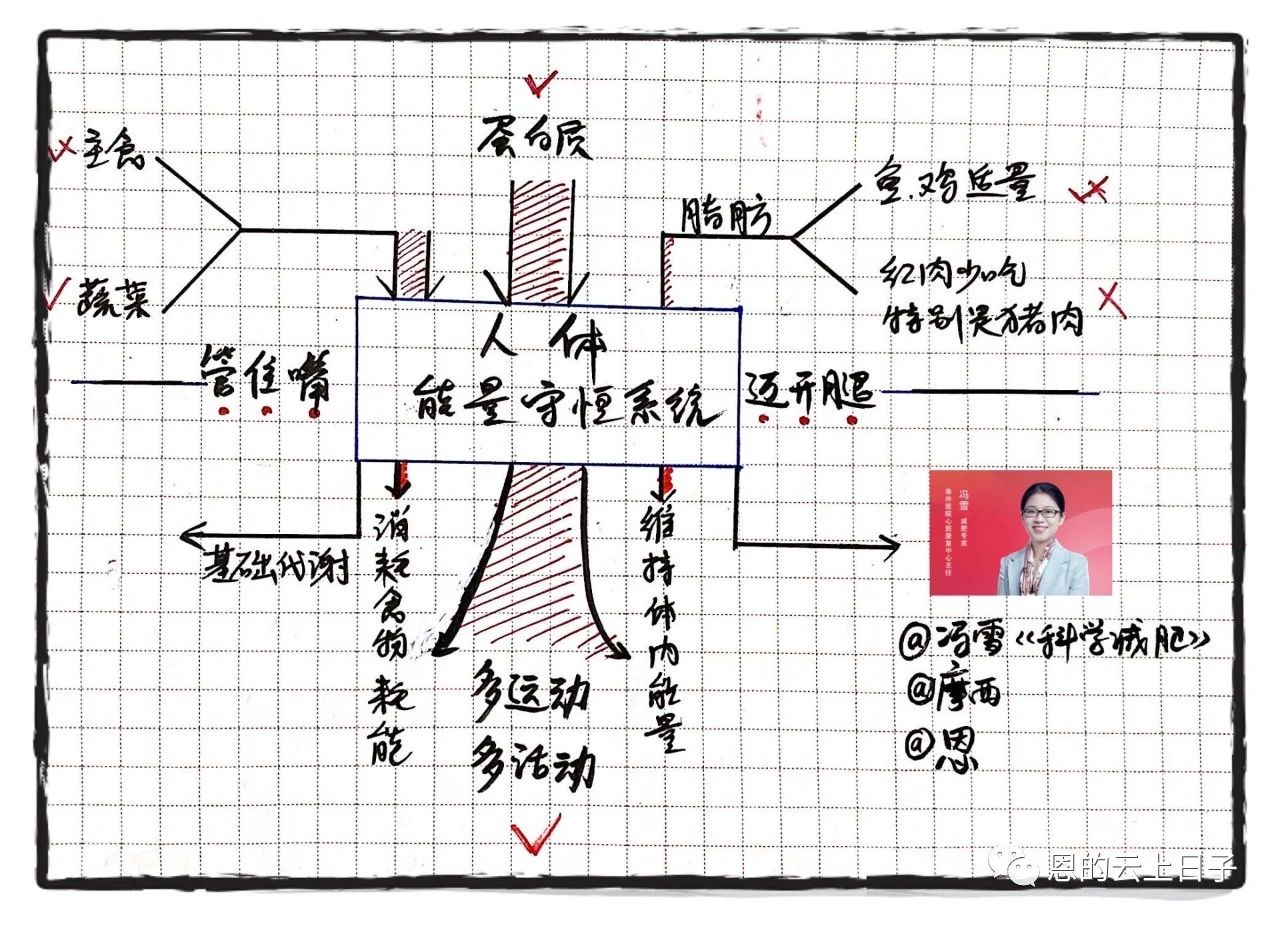 蛋白质
主食
蔬菜
脂肪
鱼、鸡适量
红肉少吃
特别是猪肉
人体
能量守恒系统
管住嘴
迈开腿
基础代谢
消耗食物耗能
多运动
多活动
维持体内能量
冯雪 减肥专家
阜外医院心脏康复中心主任
@冯雪《科学减肥》
@摩西
@恩
恩的云上日子